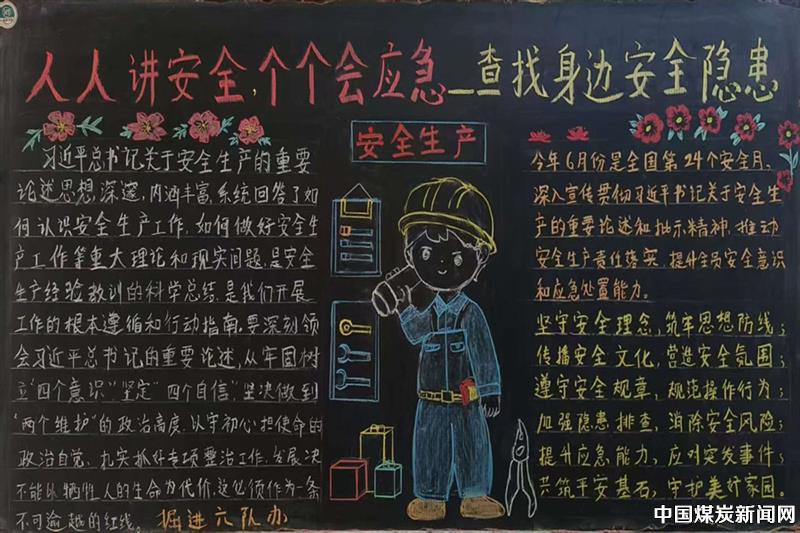 人人讲安全,个个会应急—查找身边安全隐患
安全生产
习近平总书记关于安全生产的重要
论述思想深邃,内涵丰富,系统回答了如
何认识安全生产工作,如何做好安全生
产工作等重大理论和现实问题,是安全
生产经验教训的科学总结,是我们开展
工作的根本遵循和行动指南。要深刻领
会习近平总书记的重要论述,从牢固树
立“四个意识”坚定“四个自信”坚决做到
“两个维护”的政治高度,以守初心担使命的
政治自觉,扎实抓好专项整治工作,发展决
不能以牺牲人的生命为代价,这必须作为一条
不可逾越的红线。
掘进六队办
今年6月份是全国第24个安全月、
深入宣传贯彻习近平书记关于安全生
产的重要论述和批示精神,推动
安全生产责任落实,提升全员安全意识
和应急处置能力。
坚守安全理念,筑牢思想防线;
传播安全文化,营造安全氛围;
遵守安全规章,规范操作行为;
加强隐患排查,消除安全风险;
提升应急能力,应对突发事件;
共筑平安基石,守护美好家园。
中国煤炭新闻网